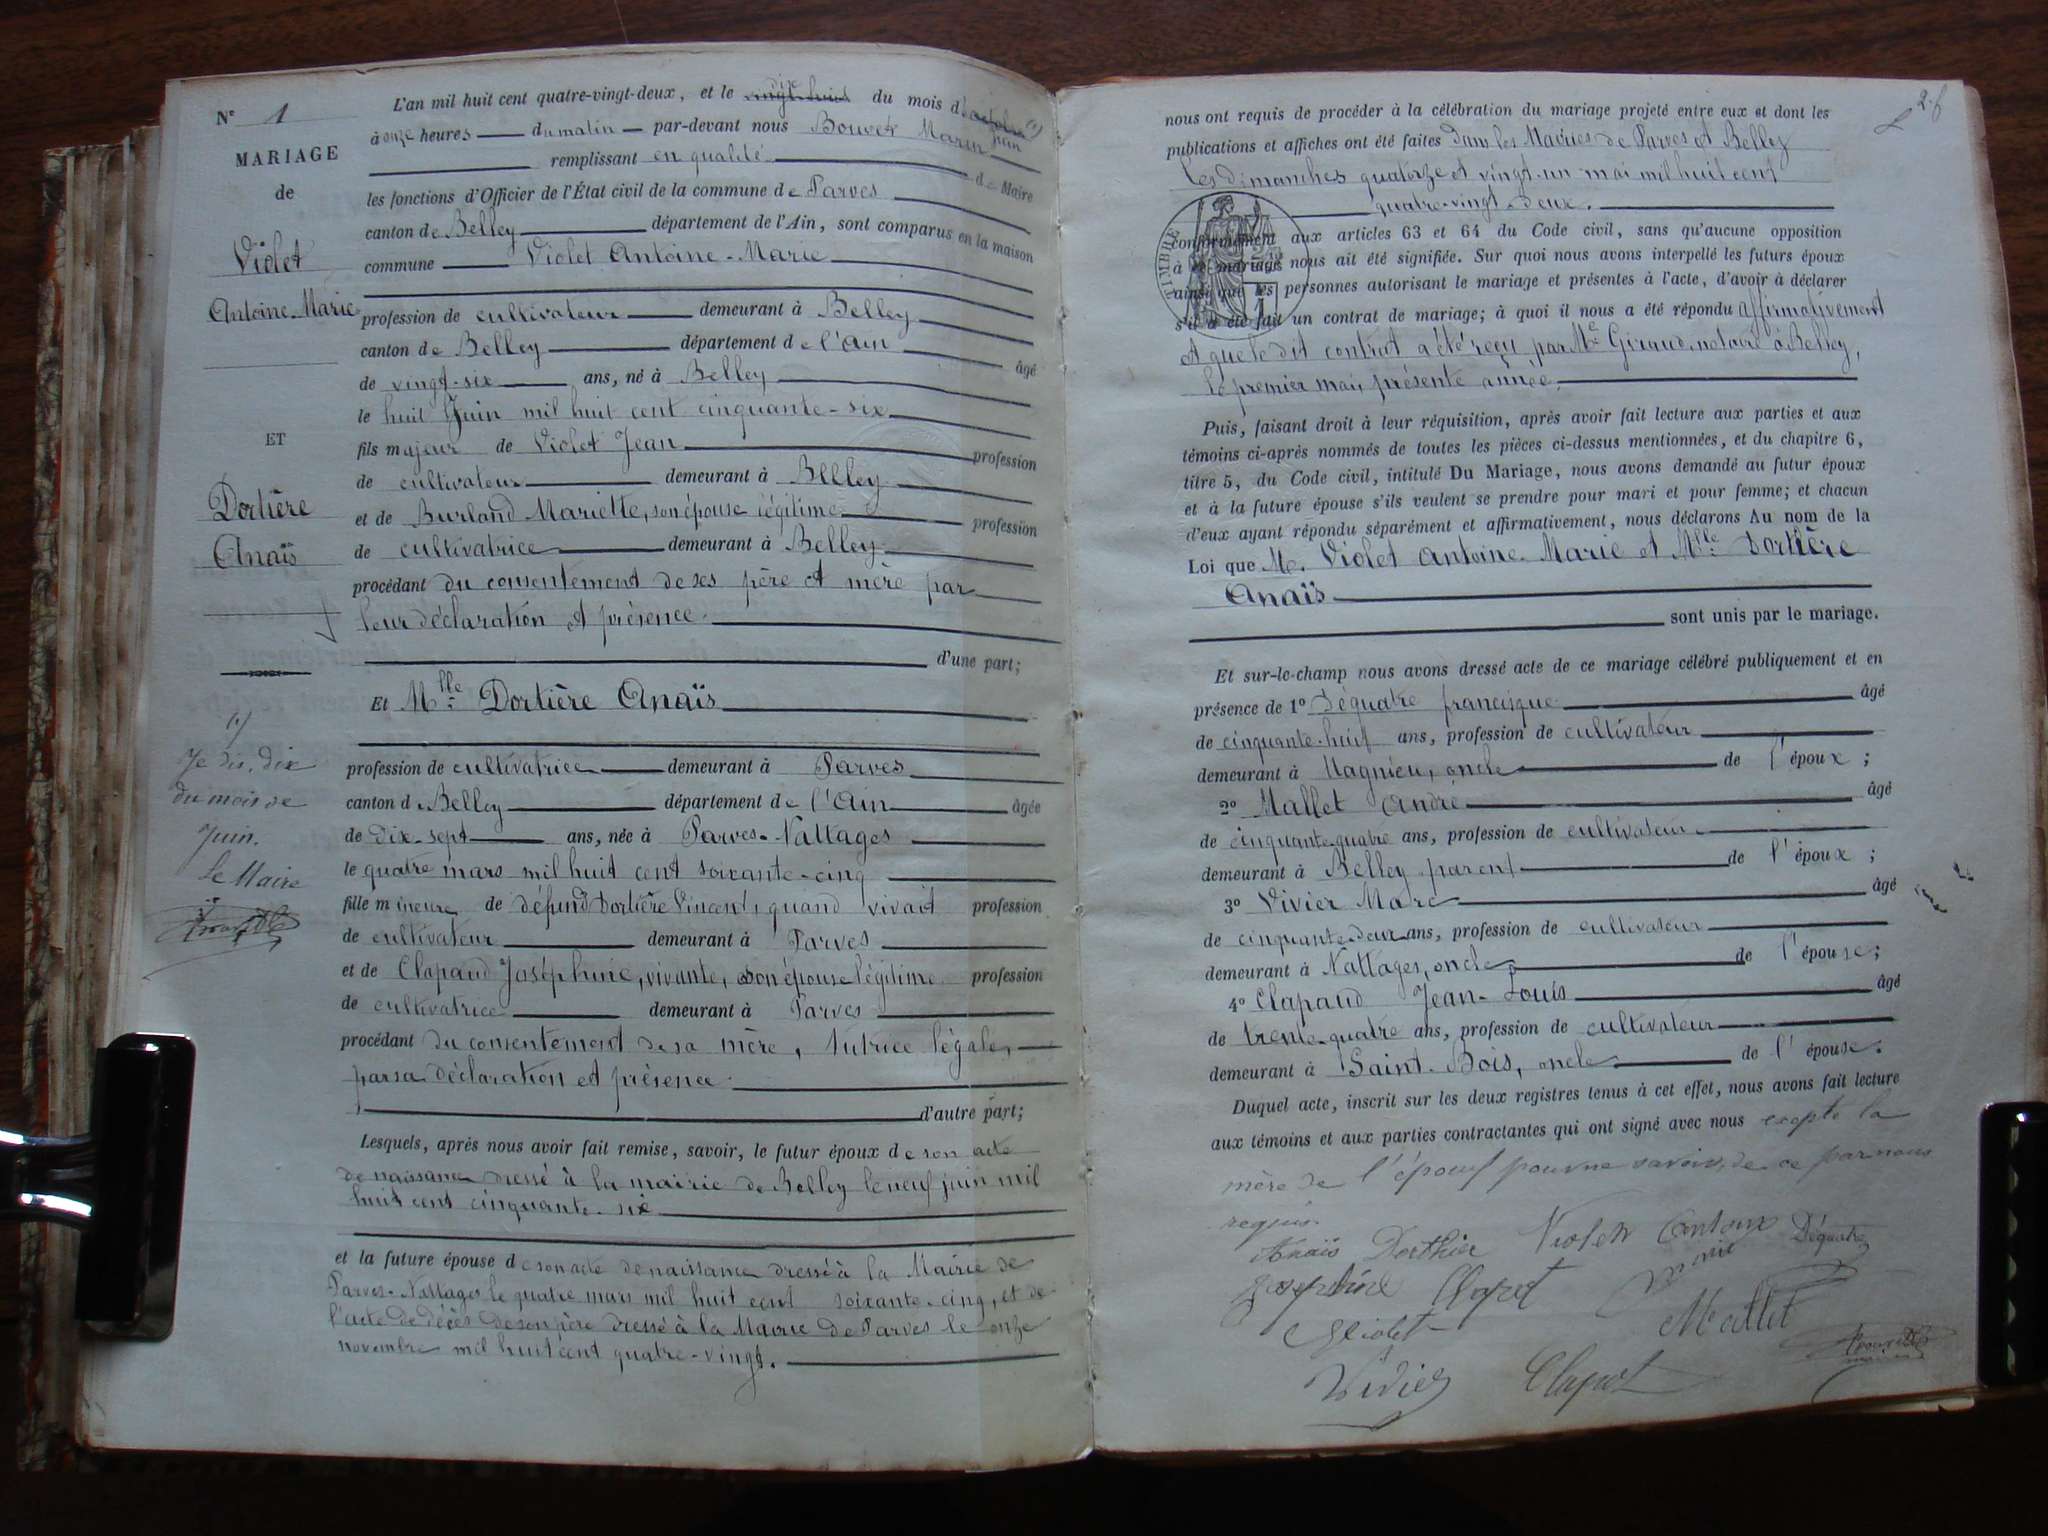 N° 1
MARIAGE
de
Violet
Antoine-Marie
ET
Dortière
Anaïs
(1)
Je dis, dix
du mois de
Juin.
Le Maire
L'an mil huit cent quatre-vingt-deux, et le vingt-huit dix du mois d'octobre (1) juin
à onze heures du matin par-devant nous Bouvet Marin
remplissant en qualité de Maire
les fonctions d'Officier de l'État civil de la commune de Parves
canton de Belley département de l'Ain, sont comparus en la maison
commune Violet Antoine-Marie
profession de cultivateur demeurant à Belley
canton de Belley département de l'Ain âgé
de vingt-six ans, né à Belley
le huit Juin mil huit cent cinquante-six
fils majeur de Violet Jean profession
de cultivateur demeurant à Belley
et de Burland Mariette, son épouse légitime profession
de cultivatrice demeurant à Belley
procédant du consentement de ses père et mère par
leur déclaration et présence.
d'une part;
Et Mlle Dortière Anaïs
profession de cultivatrice demeurant à Parves
canton de Belley département de l'Ain âgée
de dix-sept ans, née à Parves-Nattages
le quatre mars mil huit cent soixante-cinq
fille mineure de défund Dortière Vincent, quand vivait profession
de cultivateur demeurant à Parves
et de Clapaud Joséphine, vivante, son épouse légitime profession
de cultivatrice demeurant à Parves
procédant du consentement de sa mère, tutrice légale,
par sa déclaration et présence.
d'autre part;
Lesquels, après nous avoir fait remise, savoir, le futur époux de son acte
de naissance dressé à la mairie de Belley le neuf juin mil
huit cent cinquante-six
et la future épouse de son acte de naissance dressé à la Mairie de
Parves-Nattages le quatre mars mil huit cent soixante-cinq, et de
l'acte de décès de son père dressé à la Mairie de Parves le onze
novembre mil huit cent quatre-vingt.
2. f
nous ont requis de procéder à la célébration du mariage projeté entre eux et dont les
publications et affiches ont été faites dans les Mairies de Parves et Belley
les dimanches quatorze et vingt-un mai mil huit cent
quatre-vingt-deux.
TIMBRE
conformément aux articles 63 et 64 du Code civil, sans qu'aucune opposition
à ce mariage nous ait été signifiée. Sur quoi nous avons interpellé les futurs époux
ainsi que les personnes autorisant le mariage et présentes à l'acte, d'avoir à déclarer
s'il a été fait un contrat de mariage; à quoi il nous a été répondu affirmativement
et que le dit contrat a été reçu par Me Giraud, notaire à Belley,
le premier mai, présente année.
Puis, faisant droit à leur réquisition, après avoir fait lecture aux parties et aux
témoins ci-après nommés de toutes les pièces ci-dessus mentionnées, et du chapitre 6,
titre 5, du Code civil, intitulé Du Mariage, nous avons demandé au futur époux
et à la future épouse s'ils veulent se prendre pour mari et pour femme; et chacun
d'eux ayant répondu séparément et affirmativement, nous déclarons Au nom de la
Loi que M. Violet Antoine-Marie et Mlle Dortière
Anaïs
sont unis par le mariage.
Et sur-le-champ nous avons dressé acte de ce mariage célébré publiquement et en
présence de 1° Déquatre francisque âgé
de cinquante-huit ans, profession de cultivateur
demeurant à Magnieu, oncle de l'époux;
2° Mallet André âgé
de cinquante-quatre ans, profession de cultivateur
demeurant à Belley, parent de l'époux;
3° Vivier Marc âgé
de cinquante-deux ans, profession de cultivateur
demeurant à Nattages, oncle de l'épouse;
4° Clapaud Jean-Louis âgé
de trente-quatre ans, profession de cultivateur
demeurant à Saint-Bois, oncle de l'épouse.
Duquel acte, inscrit sur les deux registres tenus à cet effet, nous avons fait lecture
aux témoins et aux parties contractantes qui ont signé avec nous excepté la
mère de l'époux pour ne savoir, de ce par nous
requis.
Anaïs Dorthier Violet Antoine Marie Déquatre
Josephine Clapot
Violet Mallet
Vivier Clapot